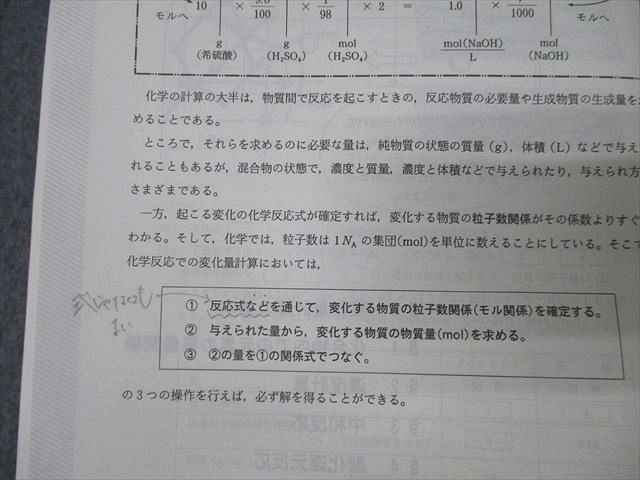 モルへ 10 × 9.8/100 × 1/98 × 2 = 1.0 × V/1000 モルへ
g g mol mol(NaOH)/L mol
(希硫酸) (H₂SO₄) (H₂SO₄) (NaOH)
化学の計算の大半は，物質間で反応を起こすときの，反応物質の必要量や生成物質の生成量を
めることである。
ところで，それらを求めるのに必要な量は，純物質の状態の質量（g），体積（L）などで与え
れることもあるが，混合物の状態で，濃度と質量，濃度と体積などで与えられたり，与えられ方
さまざまである。
一方，起こる変化の化学反応式が確定すれば，変化する物質の粒子数関係がその係数よりすぐ
わかる。そして，化学では，粒子数は1N_Aの集団(mol)を単位に数えることにしている。そこで
化学反応での変化量計算においては，
式じゃなくても
よい
① 反応式などを通じて，変化する物質の粒子数関係(モル関係)を確定する。
② 与えられた量から，変化する物質の物質量(mol)を求める。
③ ②の量を①の関係式でつなぐ。
の3つの操作を行えば，必ず解を得ることができる。
§1
§2 濃度計算
§3 中和反応
§4 酸化還元反応